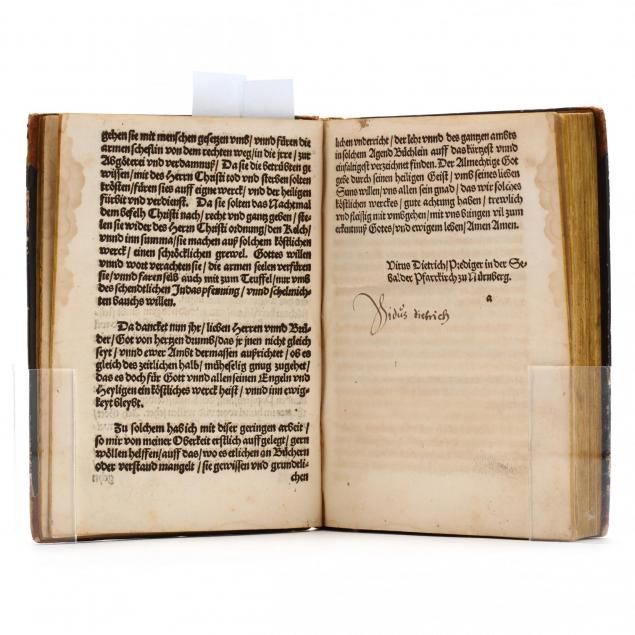 gehen sie mit menschen gesetzen vmb/ vnnd füren die
armen scheflin von dem rechten weg/in die jrre/ zur
Abgötterei vnd verdamnuß/ Da sie die betrübten ge
wissen/ mit des Herrn Christi tod vnd sterben solten
trösten/füren sies auff eigne werck/ vnd der heiligen
fürbit vnd verdienst. Da sie solten das Nachtmal
dem befelh Christi nach/ recht vnd gantz geben/ ste-
len sie wider des Herrn Christi ordnung/den Kelch/
vnnd inn summa/sie machen auß solchem köstlichen
werck/ einen schröcklichen grewel. Gottes willen
vnnd wort verachten sie/ die armen seelen verfüren
sie/vnnd faren selbs auch mit zum Teuffel/nur vmb
des schendtlichen Judas pfenning/ vnnd schelmich-
ten bauchs willen.
Da dancket nun jhr/ lieben Herren vnnd Brü-
der/Got von hertzen drumb/das jr jnen nicht gleich
seyt/ vnnd ewer Ambt dermassen außrichtet/ ob es
gleich des zeitlichen halb/ müheselig gnug zugehet/
das es doch für Gott vnnd allen seinen Engeln vnd
Heyligen ein köstliches werck heist/ vnnd inn ewig-
keyt bleybt.
Zu solchem hab ich mit diser geringen arbeit/
so mir von meiner Oberkeit erstlich auffgelegt/gern
wöllen helffen/auff das/wo es etlichen an Büchern
oder verstand mangelt/sie gewissen vnd grundtli-
chen
lichen vnderricht/ der lehr vnnd des gantzen ambts
in solchem Agend Büchlein auff das kürtzest vnnd
einfaltigest verzeichnet finden. Der Almechtige Got
gebe durch seinen heiligen Geist/ vmb seines lieben
Suns willen/vns allen sein gnad/das wir solches
köstlichen werckes/gute achtung haben/ trewlich
vnd fleissig mit vmbgehen/mit vns bringen vil zum
erkentnuß Gottes/vnd ewigem leben/Amen Amen.
Vitus Dietrich/Prediger in der Se-
balder Pfarrkirch zu Nürnberg.
a
Vidus dietrich